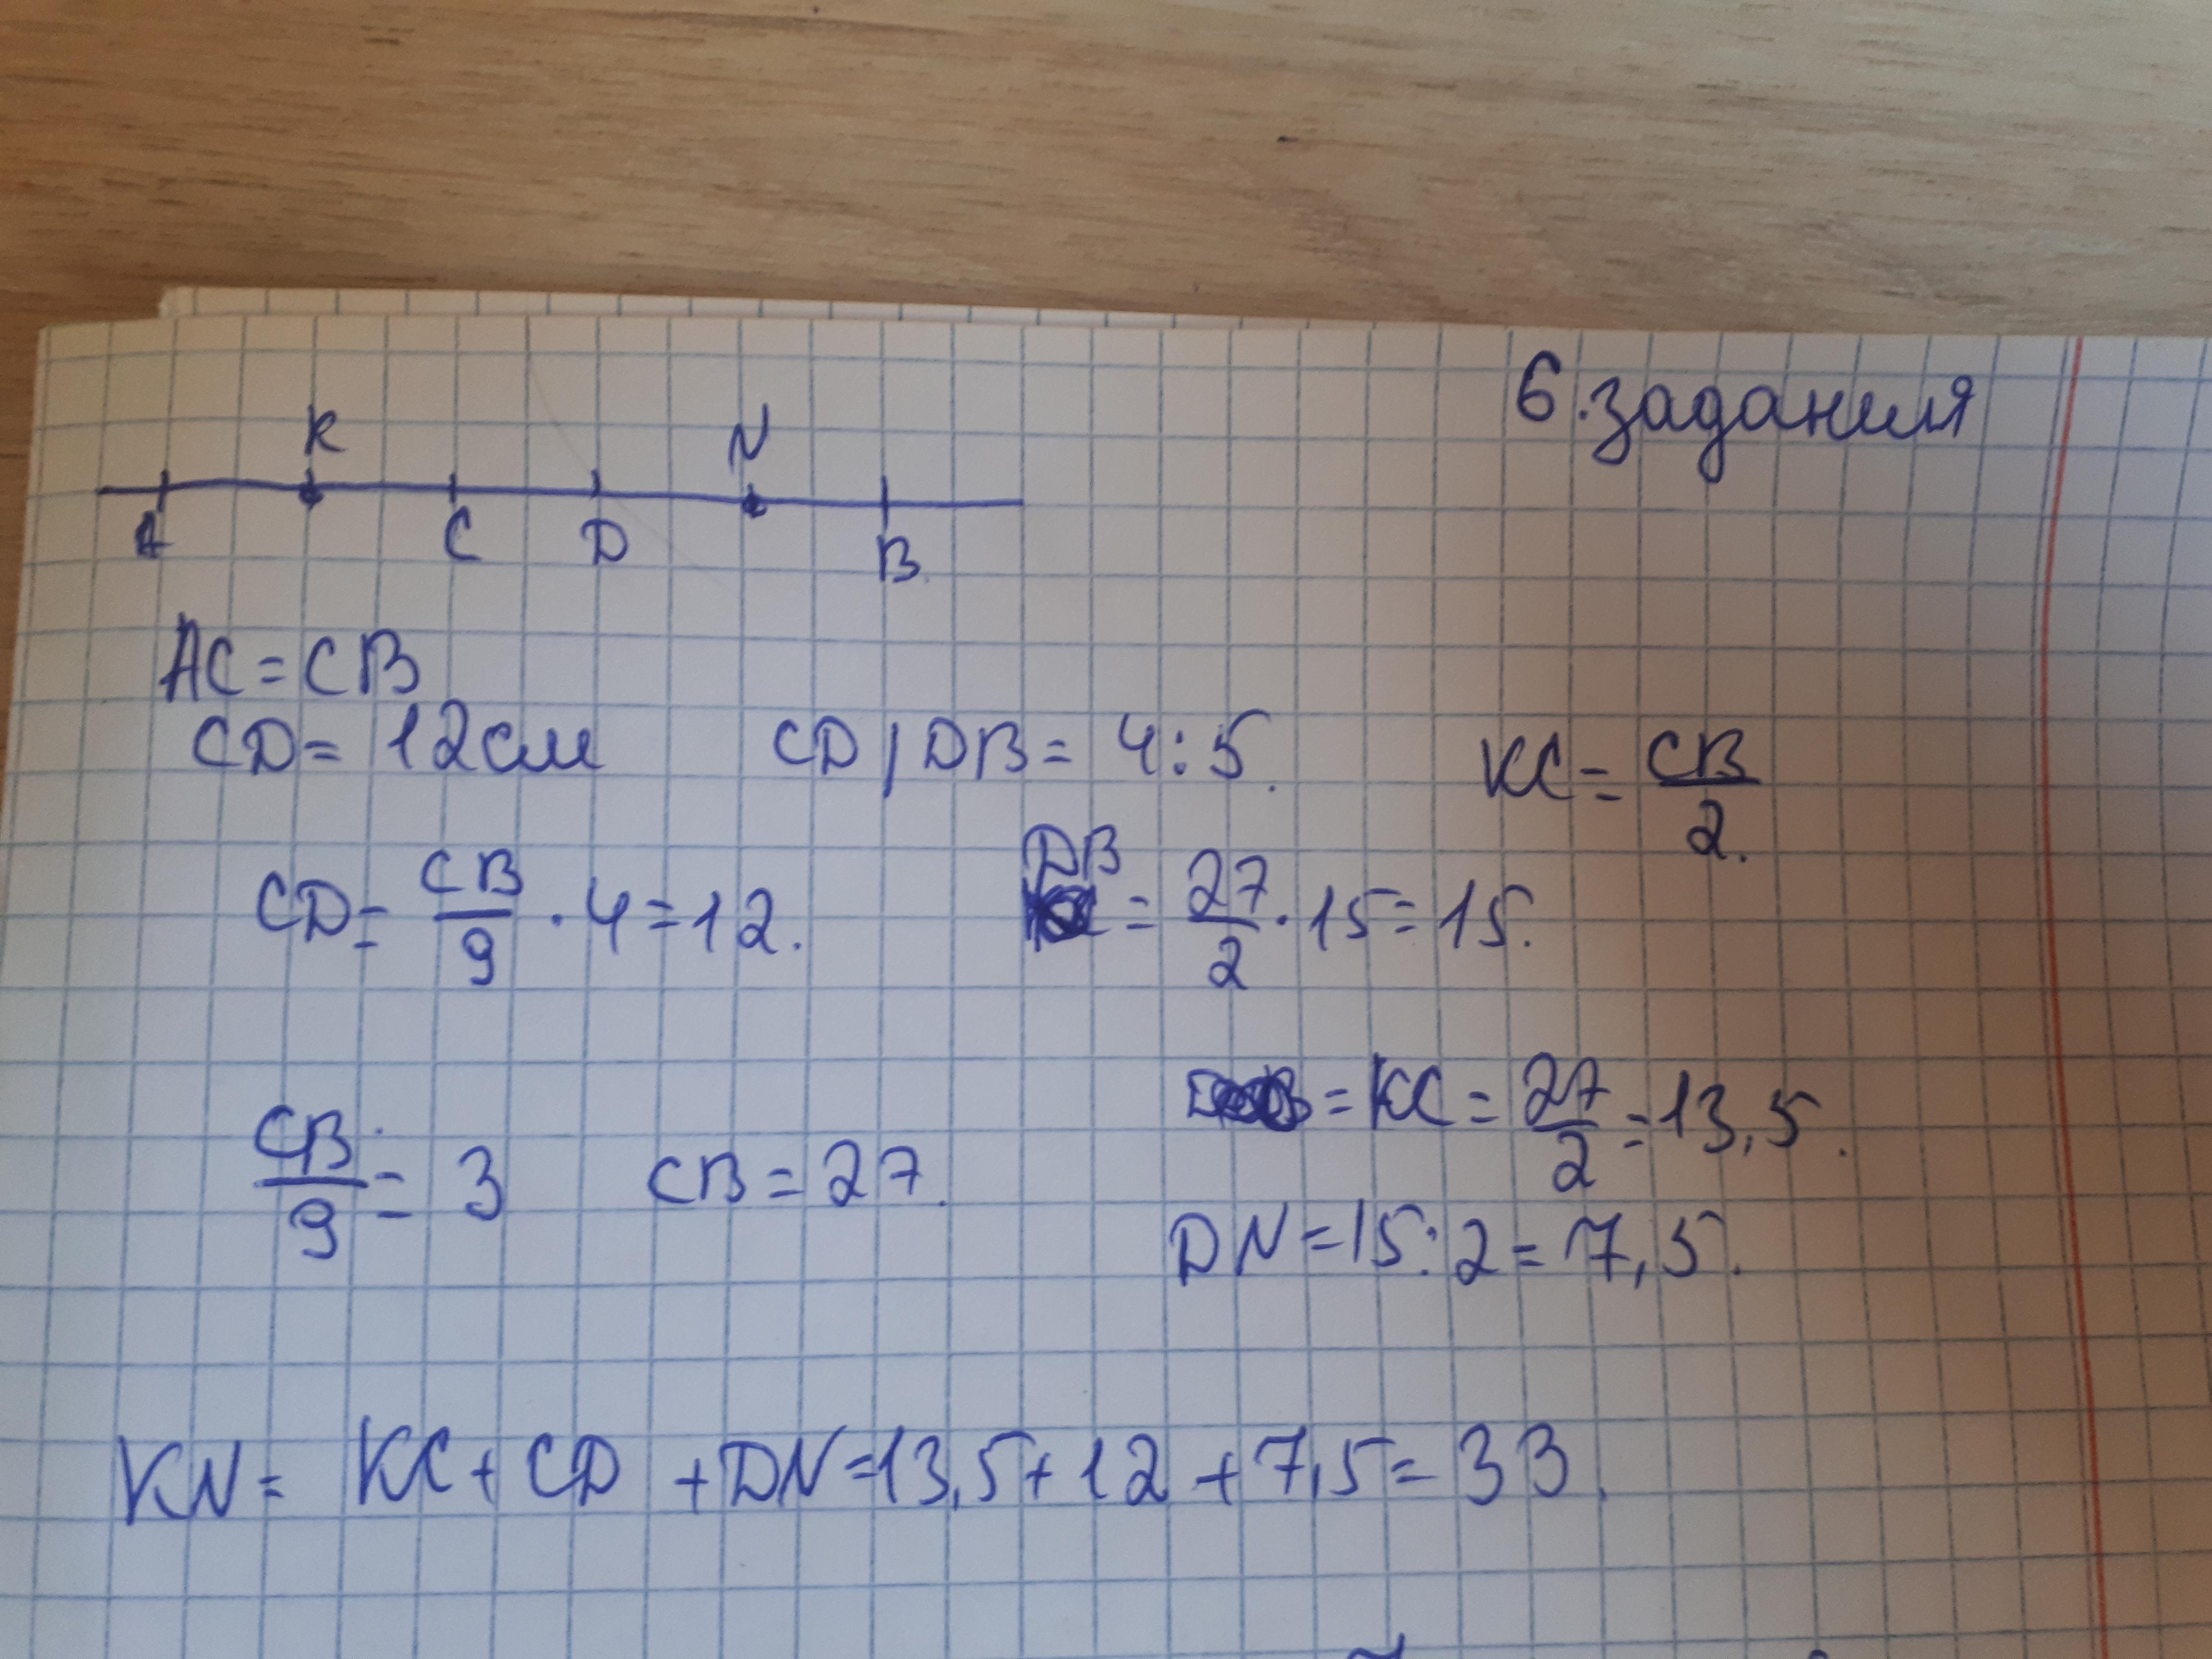 6.задания
K N
A C D B
AC=CB
CD= 12см CD/DB= 4:5. KC= CB/2.
CD= CB/9 · 4=12. DB = 27/2 · 15=15.
CB/9 = 3 CB=27. = KC= 27/2 =13,5.
DN=15:2=7,5.
KN= KC+CD+DN=13,5+12+7,5=33.